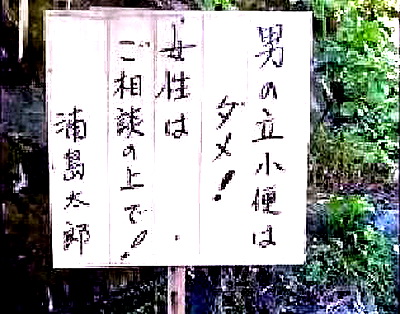 男の立小便は
ダメ!
女性は
ご相談の上で!
浦島太郎